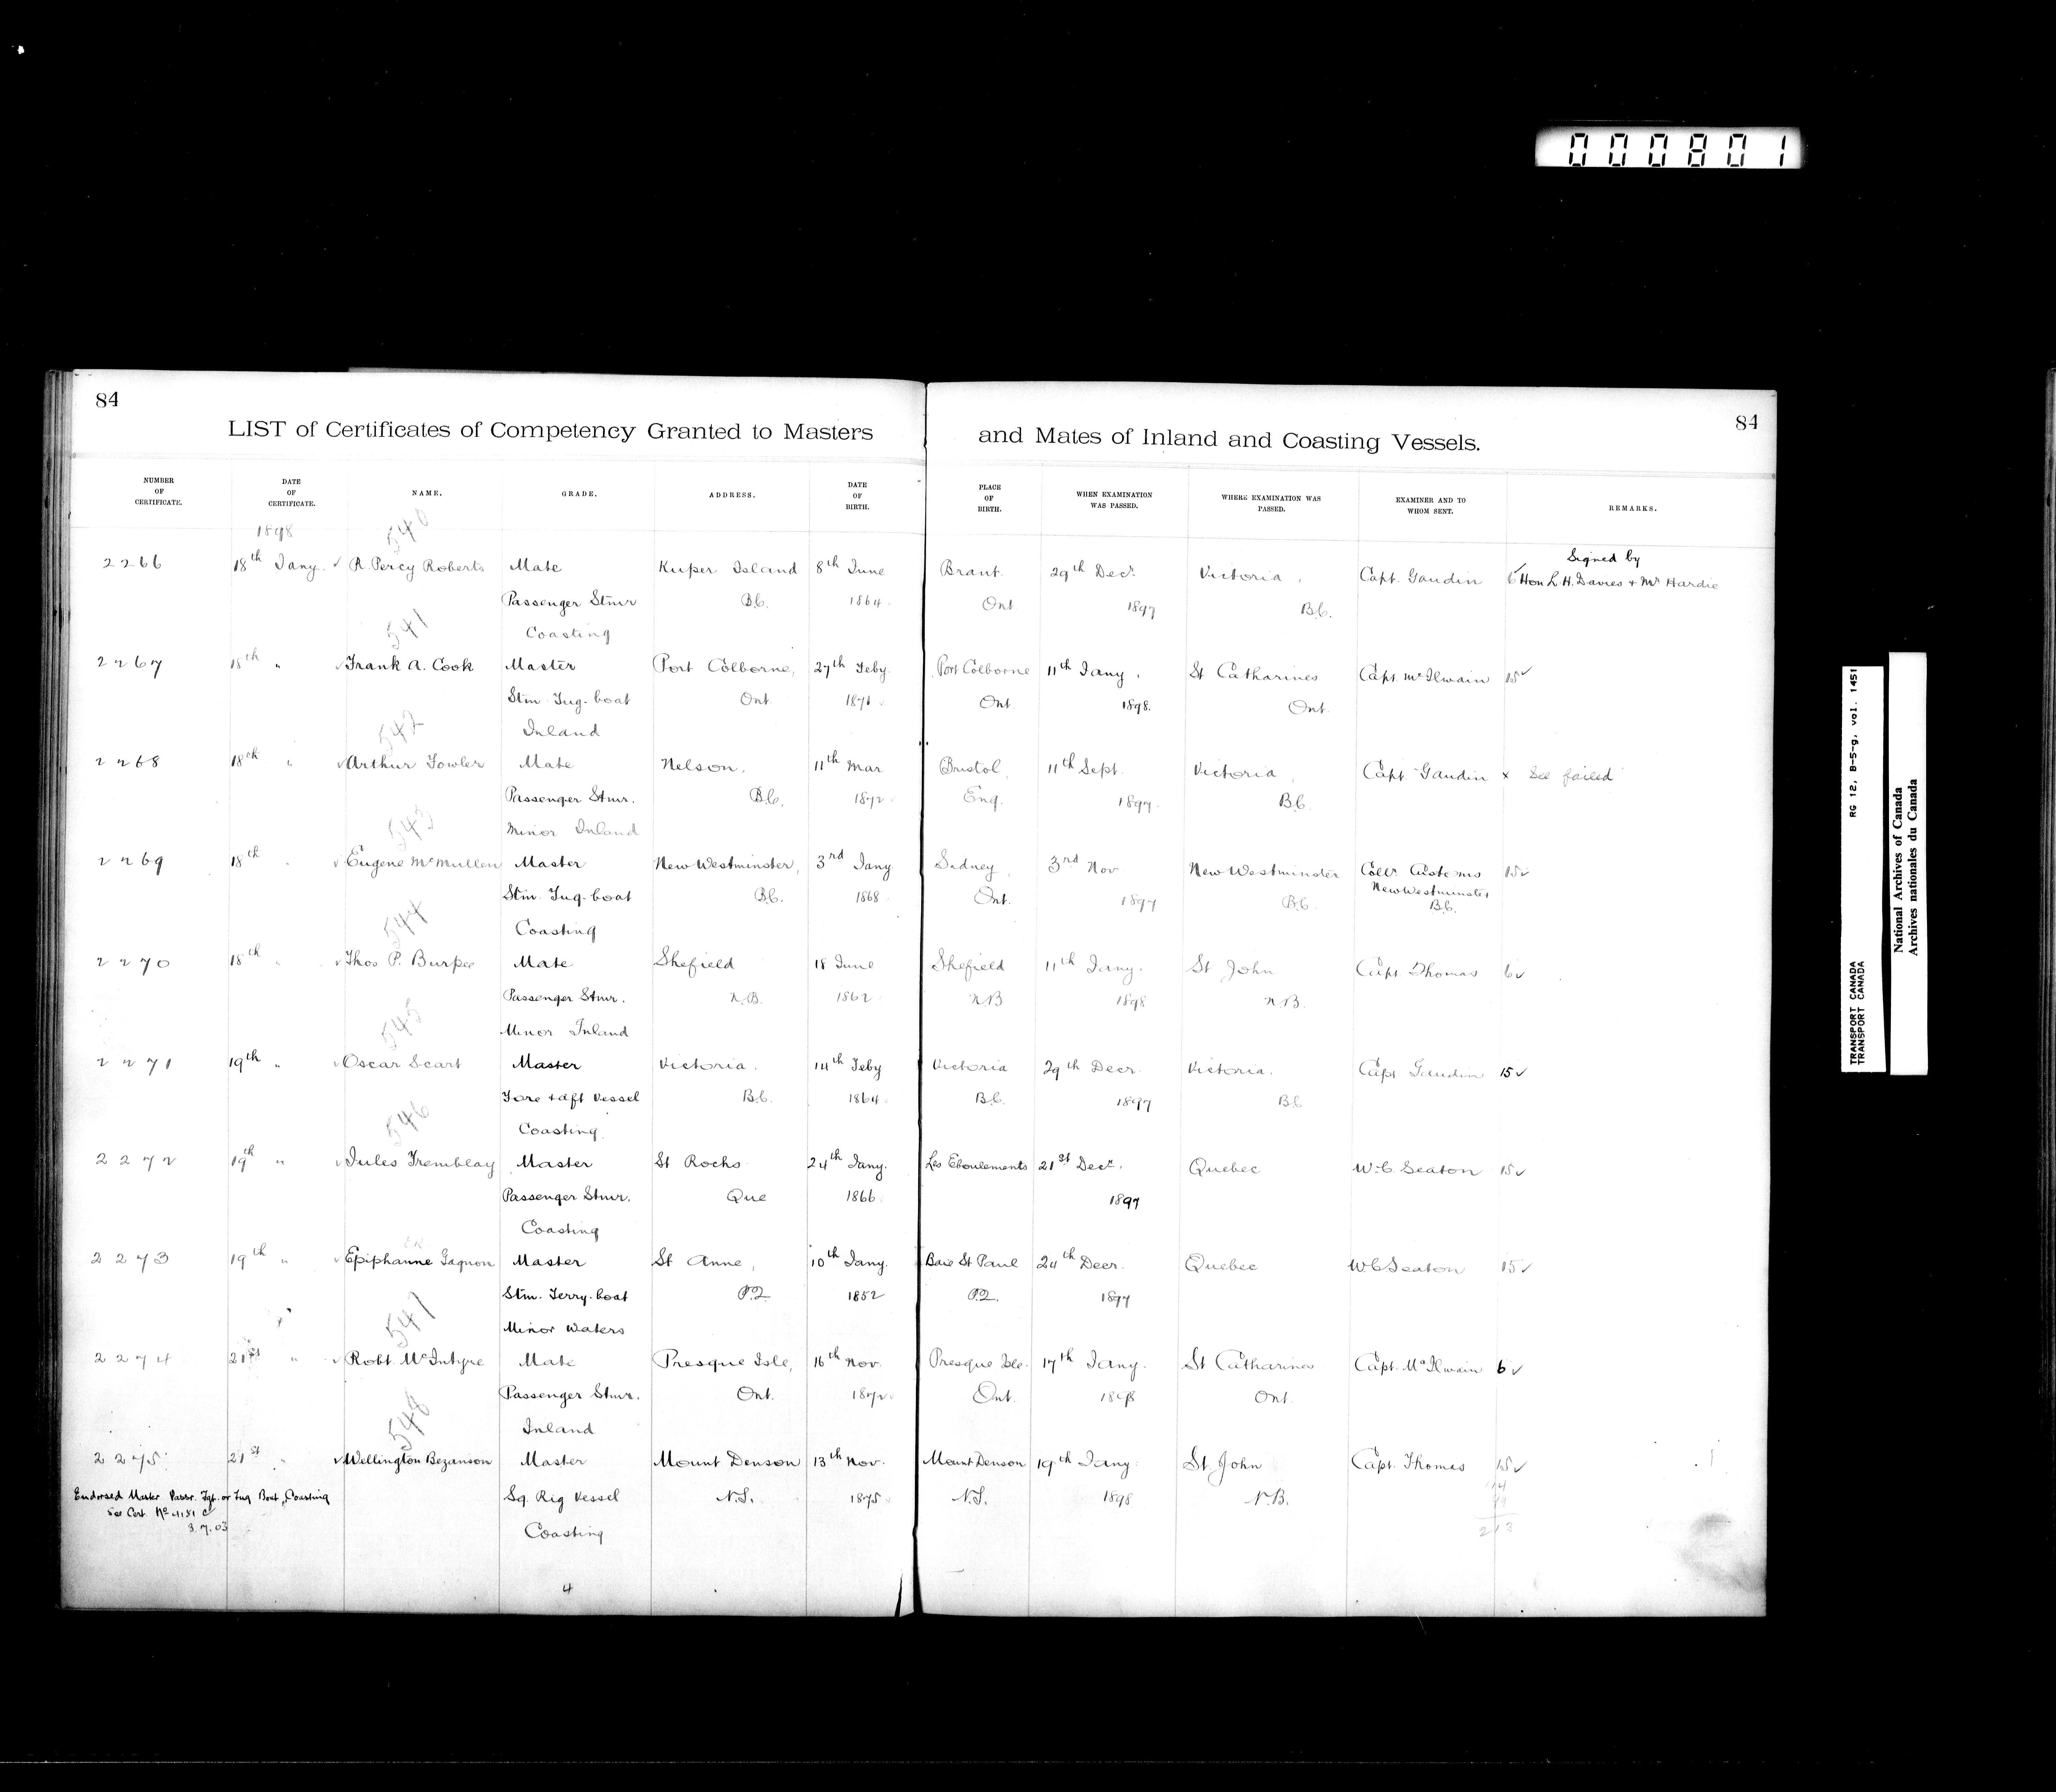 000801
84
84
LIST of Certificates of Competency Granted to Masters and Mates of Inland and Coasting Vessels.
NUMBER OF CERTIFICATE. DATE OF CERTIFICATE. NAME. GRADE. ADDRESS. DATE OF BIRTH. PLACE OF BIRTH. WHEN EXAMINATION WAS PASSED. WHERE EXAMINATION WAS PASSED. EXAMINER AND TO WHOM SENT. REMARKS.
1898 540
Signed by
2266 18th Jany. ✓ R. Percy Roberts Mate Kuper Island 8th June Brant. 29th Decr. Victoria, Capt. Gaudin 6✓ Hon L. H. Davies + Mr Hardie
Passenger Stmr B.C. 1864. Ont 1897 B.C.
541 Coasting
2267 18th " ✓ Frank A. Cook Master Port Colborne, 27th Feby. Port Colborne 11th Jany. St Catharines Capt. McIlwain 15✓
Stm. Tug-boat Ont. 1871 Ont. 1898. Ont.
542 Inland
2268 18th " ✓ Arthur Fowler Mate Nelson, 11th Mar Bristol, 11th Sept. Victoria, Capt Gaudin x See failed
Passenger Stmr. B.C. 1872 Eng. 1897. B.C.
543 Minor Inland
2269 18th " ✓ Eugene McMullen Master New Westminster, 3rd Jany Sidney, 3rd Nov New Westminster Collr Customs 15✓
Stm. Tug-boat B.C. 1868 Ont. 1897 B.C. New Westminster,
B.C.
544 Coasting
2270 18th " ✓ Thos P. Burpee Mate Shefield 18 June Shefield 11th Jany. St John Capt Thomas 6✓
Passenger Stmr. N.B. 1862 N.B 1898 N.B.
545 Minor Inland
2271 19th " ✓ Oscar Scart Master Victoria. 14th Feby Victoria 29th Decr. Victoria. Capt Gaudin 15✓
Fore + aft Vessel B.C. 1864. B.C. 1897 B.C
546 Coasting.
2272 19th " ✓ Jules Tremblay Master St Rochs 24th Jany. Les Eboulements 21st Decr. Quebec W.C Seaton 15✓
Passenger Stmr. Que 1866. 1897
Coasting
2273 19th " ✓ Epiphanne Gagnon Master St Anne, 10th Jany. Baie St Paul 24th Decr. Quebec W C Seaton 15✓
Stm. Ferry-boat P.Q. 1852 P.Q. 1897
547 Minor Waters
2274 21st " ✓ Robt. McIntyre Mate Presque Isle, 16th Nov. Presque Isle. 17th Jany. St Catharines Capt. McIlwain 6✓
Passenger Stmr. Ont. 1872 Ont. 1898 Ont.
548 Inland
2275 21st " ✓ Wellington Bezanson Master Mount Denson 13th Nov. Mount Denson 19th Jany. St John Capt. Thomas 15✓
Endorsed Master Passr. Fgt. or Tug Boat, Coasting Sq. Rig Vessel N.S. 1875 N.S. 1898 N.B.
See Cert. No 4151 C
3.7.03 Coasting
213
4
TRANSPORT CANADA RG 12, B-5-g, vol. 1451
TRANSPORT CANADA
National Archives of Canada
Archives nationales du Canada